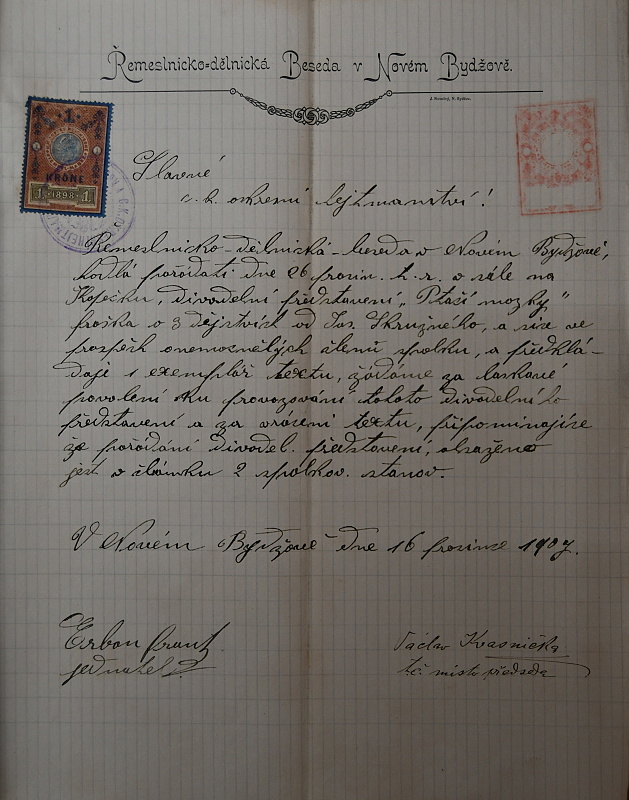 Řemeslnicko-dělnická Beseda v Novém Bydžově.
Slavné
c. k. okresní hejtmanství!
1
KRONE
1 1898 1
Řemeslnicko-dělnická-beseda v Novém Bydžově,
hodlá pořádati dne 26 prosin. t. r. v sále na
Kopečku, divadelní představení „Ptačí mozky"
fraška o 3 dějstvích od Jos. Skružného, a sice ve
prospěch onemocnělých členů spolku, a předklá-
dajíc 1 exemplář textu, žádáme za laskavé
povolení ku provozování tohoto divadelního
představení a za vrácení textu, připomínajíce
že pořádání divadel. představení, obsaženo
jest v článku 2 spolkov. stanov.
V Novém Bydžově dne 16 prosince 1907.
jednatel
Václav Kvasnička
t.č. místopředseda